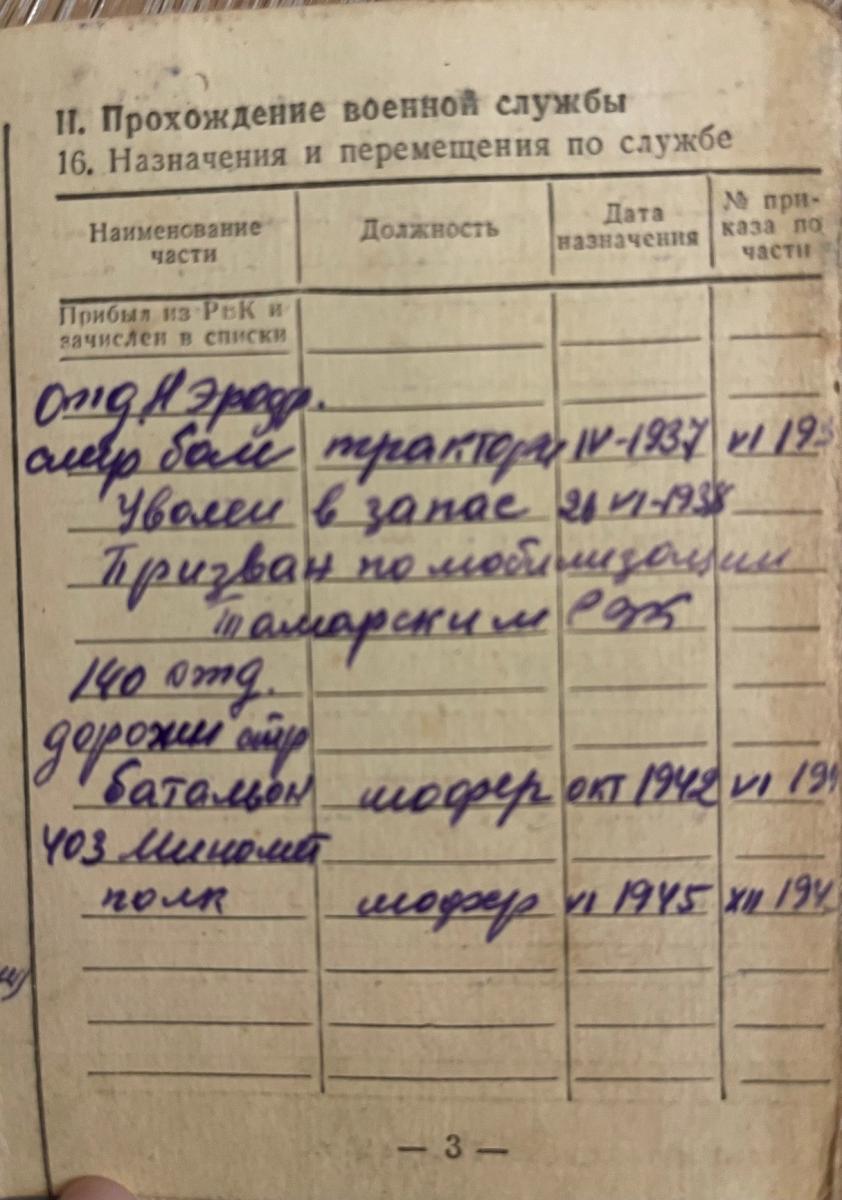 II. Прохождение военной службы
16. Назначения и перемещения по службе
Наименование части
Должность
Дата назначения
№ при-каза по части
Прибыл из РВК и
зачислен в списки
отд. Аэродр.
стр бат тракторист IV-1937 VI 193
Уволен в запас 26 VI-1938
Призван по мобилизации
Татарским РВК
140 отд.
дорожн стр
батальон шофер окт 1942 VI 194
403 Миномет
полк шофер VI 1945 XII 194
— 3 —